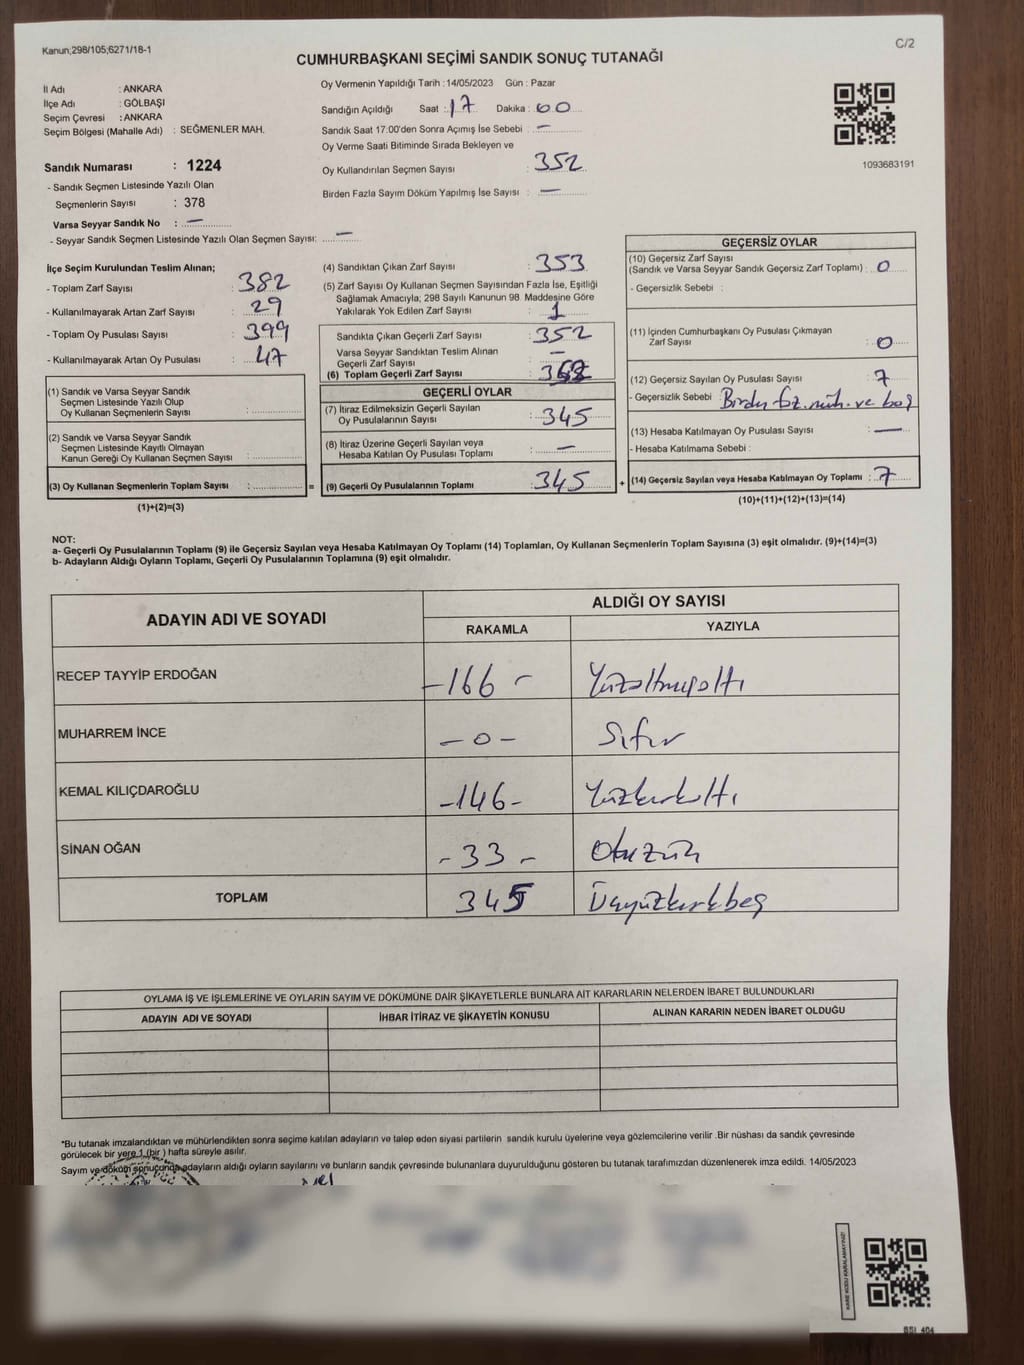 Kanun;298/105;6271/18-1
C/2
CUMHURBAŞKANI SEÇİMİ SANDIK SONUÇ TUTANAĞI
İl Adı : ANKARA
İlçe Adı : GÖLBAŞI
Seçim Çevresi : ANKARA
Seçim Bölgesi (Mahalle Adı) : SEĞMENLER MAH.
Sandık Numarası : 1224
- Sandık Seçmen Listesinde Yazılı Olan
Seçmenlerin Sayısı : 378
Varsa Seyyar Sandık No : —
- Seyyar Sandık Seçmen Listesinde Yazılı Olan Seçmen Sayısı: —
Oy Vermenin Yapıldığı Tarih : 14/05/2023 Gün : Pazar
Sandığın Açıldığı Saat : 17 Dakika : 00
Sandık Saat 17:00'den Sonra Açımış İse Sebebi : —
Oy Verme Saati Bitiminde Sırada Bekleyen ve
Oy Kullandırılan Seçmen Sayısı : 352
Birden Fazla Sayım Döküm Yapılmış İse Sayısı : —
1093683191
İlçe Seçim Kurulundan Teslim Alınan;
- Toplam Zarf Sayısı : 382
- Kullanılmayarak Artan Zarf Sayısı : 29
- Toplam Oy Pusulası Sayısı : 399
- Kullanılmayarak Artan Oy Pusulası : 47
(1) Sandık ve Varsa Seyyar Sandık
Seçmen Listesinde Yazılı Olup
Oy Kullanan Seçmenlerin Sayısı :
(2) Sandık ve Varsa Seyyar Sandık
Seçmen Listesinde Kayıtlı Olmayan
Kanun Gereği Oy Kullanan Seçmen Sayısı :
(3) Oy Kullanan Seçmenlerin Toplam Sayısı : =
(1)+(2)=(3)
(4) Sandıktan Çıkan Zarf Sayısı : 353
(5) Zarf Sayısı Oy Kullanan Seçmen Sayısından Fazla İse, Eşitliği
Sağlamak Amacıyla; 298 Sayılı Kanunun 98. Maddesine Göre
Yakılarak Yok Edilen Zarf Sayısı : 1
Sandıkta Çıkan Geçerli Zarf Sayısı : 352
Varsa Seyyar Sandıktan Teslim Alınan
Geçerli Zarf Sayısı : —
(6) Toplam Geçerli Zarf Sayısı :
GEÇERLİ OYLAR
(7) İtiraz Edilmeksizin Geçerli Sayılan
Oy Pusulalarının Sayısı : 345
(8) İtiraz Üzerine Geçerli Sayılan veya
Hesaba Katılan Oy Pusulası Toplamı : —
(9) Geçerli Oy Pusulalarının Toplamı : 345 +
GEÇERSİZ OYLAR
(10) Geçersiz Zarf Sayısı
(Sandık ve Varsa Seyyar Sandık Geçersiz Zarf Toplamı) : 0
- Geçersizlik Sebebi :
(11) İçinden Cumhurbaşkanı Oy Pusulası Çıkmayan
Zarf Sayısı : 0
(12) Geçersiz Sayılan Oy Pusulası Sayısı : 7
- Geçersizlik Sebebi : Birden fz. müh. ve boş
(13) Hesaba Katılmayan Oy Pusulası Sayısı : —
- Hesaba Katılmama Sebebi :
(14) Geçersiz Sayılan veya Hesaba Katılmayan Oy Toplamı : 7
(10)+(11)+(12)+(13)=(14)
NOT:
a- Geçerli Oy Pusulalarının Toplamı (9) ile Geçersiz Sayılan veya Hesaba Katılmayan Oy Toplamı (14) Toplamları, Oy Kullanan Seçmenlerin Toplam Sayısına (3) eşit olmalıdır. (9)+(14)=(3)
b- Adayların Aldığı Oyların Toplamı, Geçerli Oy Pusulalarının Toplamına (9) eşit olmalıdır.
ADAYIN ADI VE SOYADI ALDIĞI OY SAYISI
RAKAMLA YAZIYLA
RECEP TAYYİP ERDOĞAN -166- Yüzaltmışaltı
MUHARREM İNCE -0- Sıfır
KEMAL KILIÇDAROĞLU -146- Yüzkırkaltı
SİNAN OĞAN -33- Otuzüç
TOPLAM 345 Üçyüzkırkbeş
OYLAMA İŞ VE İŞLEMLERİNE VE OYLARIN SAYIM VE DÖKÜMÜNE DAİR ŞİKAYETLERLE BUNLARA AİT KARARLARIN NELERDEN İBARET BULUNDUKLARI
ADAYIN ADI VE SOYADI İHBAR İTİRAZ VE ŞİKAYETİN KONUSU ALINAN KARARIN NEDEN İBARET OLDUĞU
*Bu tutanak imzalandıktan ve mühürlendikten sonra seçime katılan adayların ve talep eden siyasi partilerin sandık kurulu üyelerine veya gözlemcilerine verilir .Bir nüshası da sandık çevresinde
görülecek bir yere 1 (bir ) hafta süreyle asılır.
Sayım ve döküm sonucunda adayların aldığı oyların sayılarını ve bunların sandık çevresinde bulunanlara duyurulduğunu gösteren bu tutanak tarafımızdan düzenlenerek imza edildi. 14/05/2023
KARE KODU KARALAMAYINIZ!